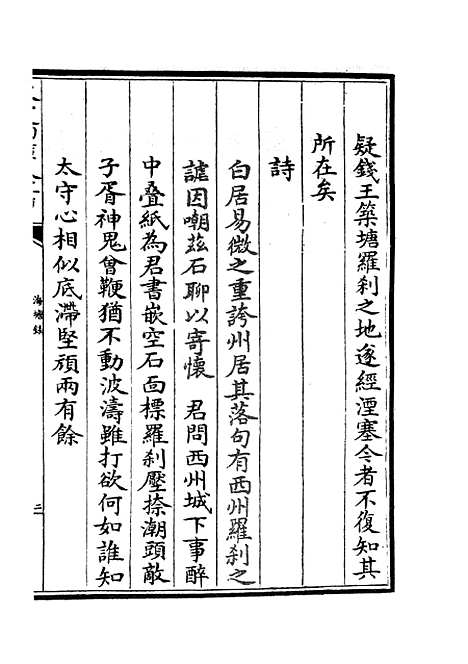 疑錢王築塘羅刹之地遂經湮塞令者不復知其
所在矣
詩
白居易微之重誇州居其落句有西州羅刹之
謔因嘲茲石聊以寄懷 君問西州城下事醉
中叠紙為君書嵌空石面標羅刹壓捺潮頭敵
子胥神鬼曾鞭猶不動波濤雖打欲何如誰知
太守心相似底滯堅頑兩有餘
海塘録
三